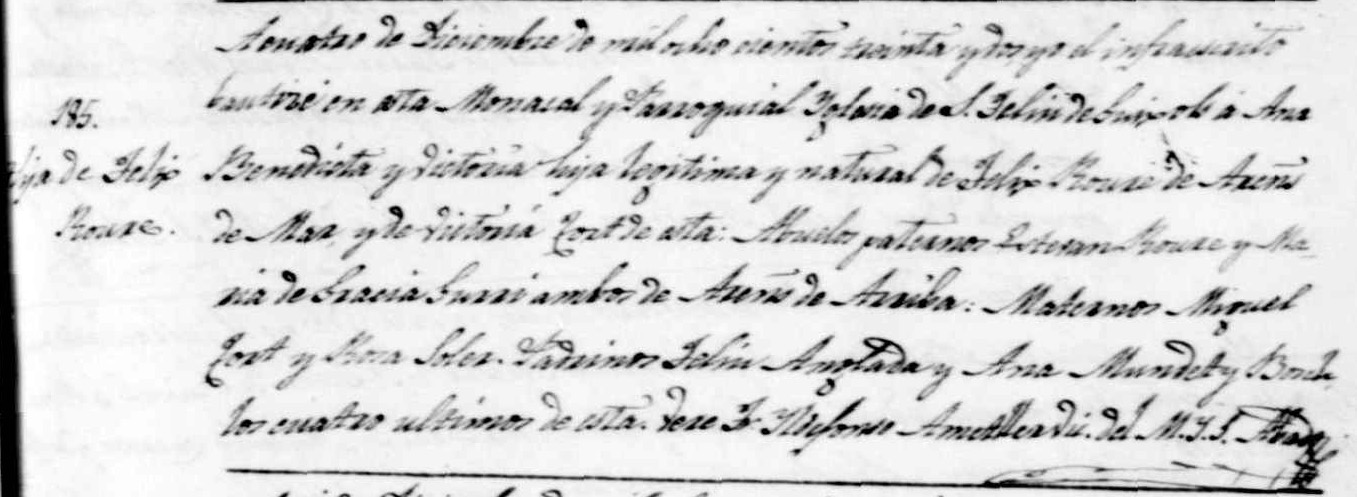 A cuatro de Diciembre de mil ocho cientos treinta y dos yo el infrascrito
185.
bautizé en esta Monacal y Parroquial Iglesia de S. Feliu de Guixols á Ana
Hija de Felix
Benedicta y Victoria hija legitima y natural de Felix Roure de Areñs
Roure.
de Mar, y de Victoria Cort de esta: Abuelos paternos Estevan Roure y Ma-
ria de Gracia Gurri ambos de Areñs de Arriba: Maternos Miguel
Cort y Rosa Soler. Padrinos Feliu Anglada y Ana Mundet y Bosch
los cuatro ultimos de esta. Fr. Ildefonso Ametller Vic. del M. I. S. Abad